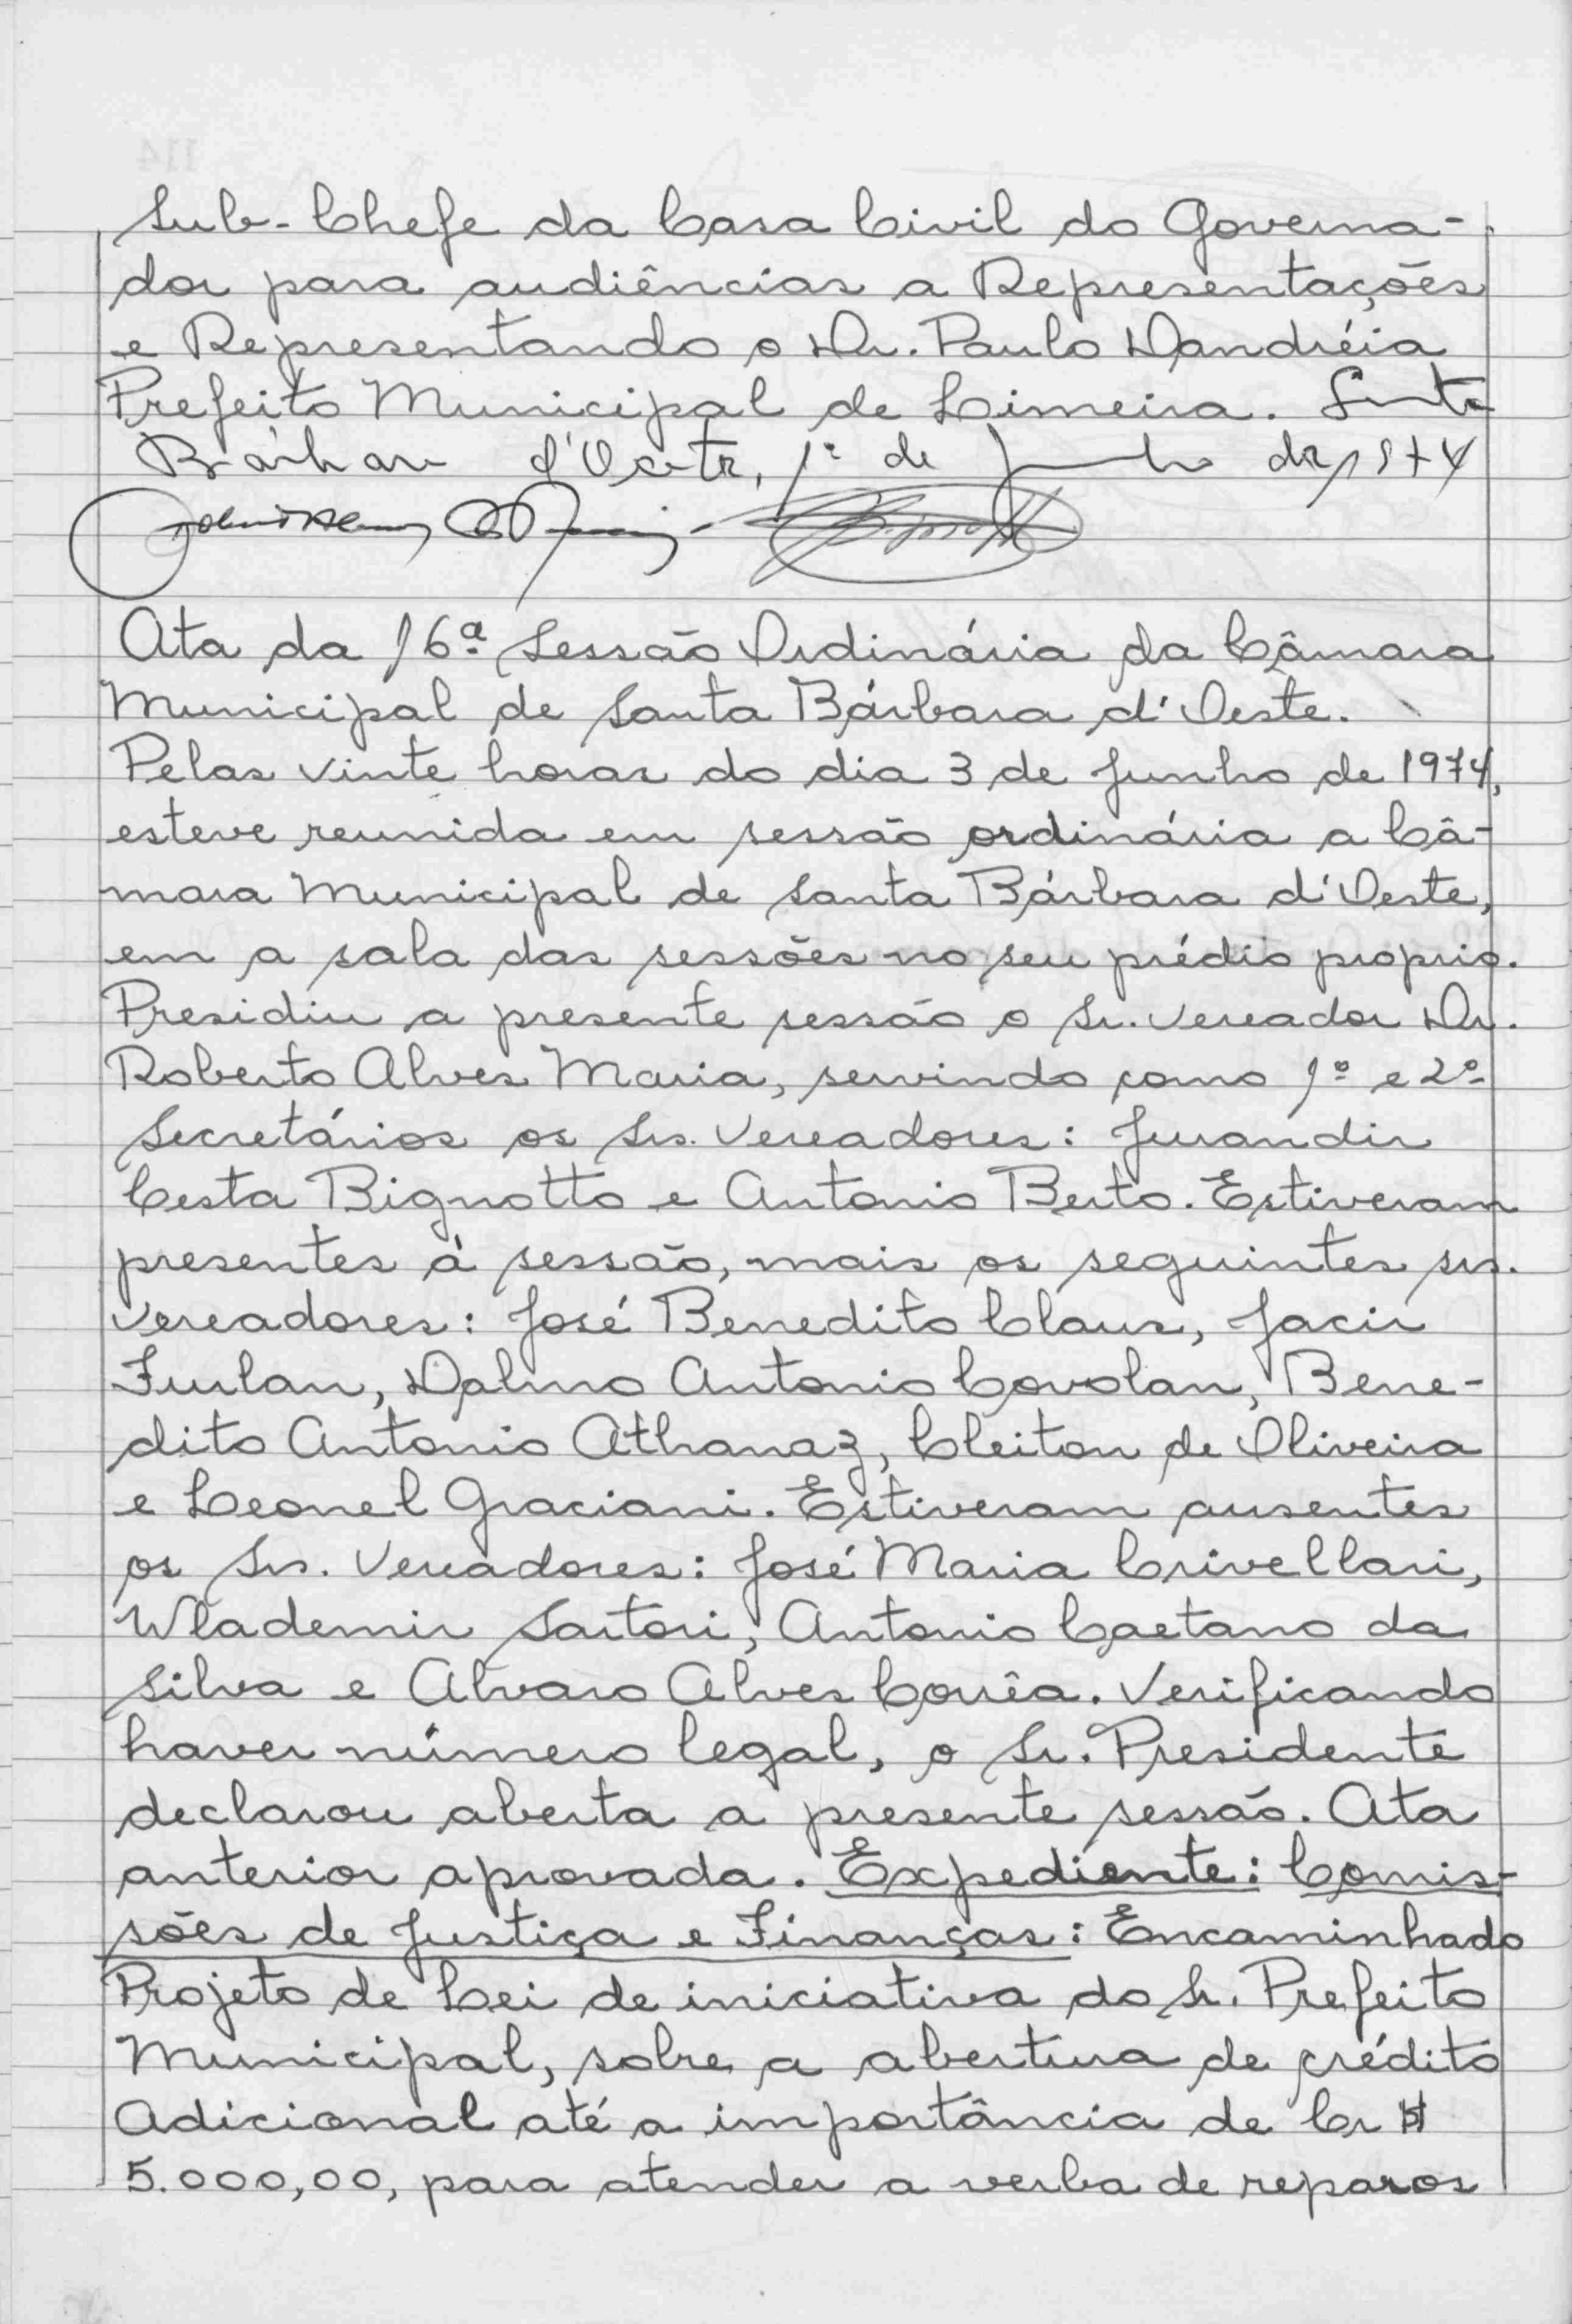 Sub-Chefe da Casa Civil do Governa-
dor para audiências a Representações
e Representando o Dr. Paulo Dandréia
Prefeito Municipal de Limeira. Santa
Bárbara d'Oeste, 1º de Junho de 1974
Ata da 16ª Sessão Ordinária da Câmara
Municipal de Santa Bárbara d'Oeste.
Pelas vinte horas do dia 3 de Junho de 1974,
esteve reunida em sessão ordinária a Câ-
mara Municipal de Santa Bárbara d'Oeste,
em a sala das sessões no seu prédio proprio.
Presidiu a presente sessão o Sr. Vereador Dr.
Roberto Alves Maria, servindo como 1º e 2º
Secretários os Srs. Vereadores: Jurandir
Cesta Bignotto e Antonio Berto. Estiveram
presentes à sessão, mais os seguintes srs.
Vereadores: José Benedito Claus, Jacir
Furlan, Dalmo Antonio Covolan, Bene-
dito Antonio Athanaz, Cleiton de Oliveira
e Leonel Graciani. Estiveram ausentes
os Srs. Vereadores: José Maria Crivellari,
Wlademir Sartori, Antonio Caetano da
Silva e Alvaro Alves Corrêa. Verificando
haver número legal, o Sr. Presidente
declarou aberta a presente sessão. Ata
anterior aprovada. Expediente: Comis-
sões de Justiça e Finanças: Encaminhado
Projeto de Lei de iniciativa do Sr. Prefeito
Municipal, sobre a abertura de crédito
Adicional até a importância de Cr$
5.000,00, para atender a verba de reparos